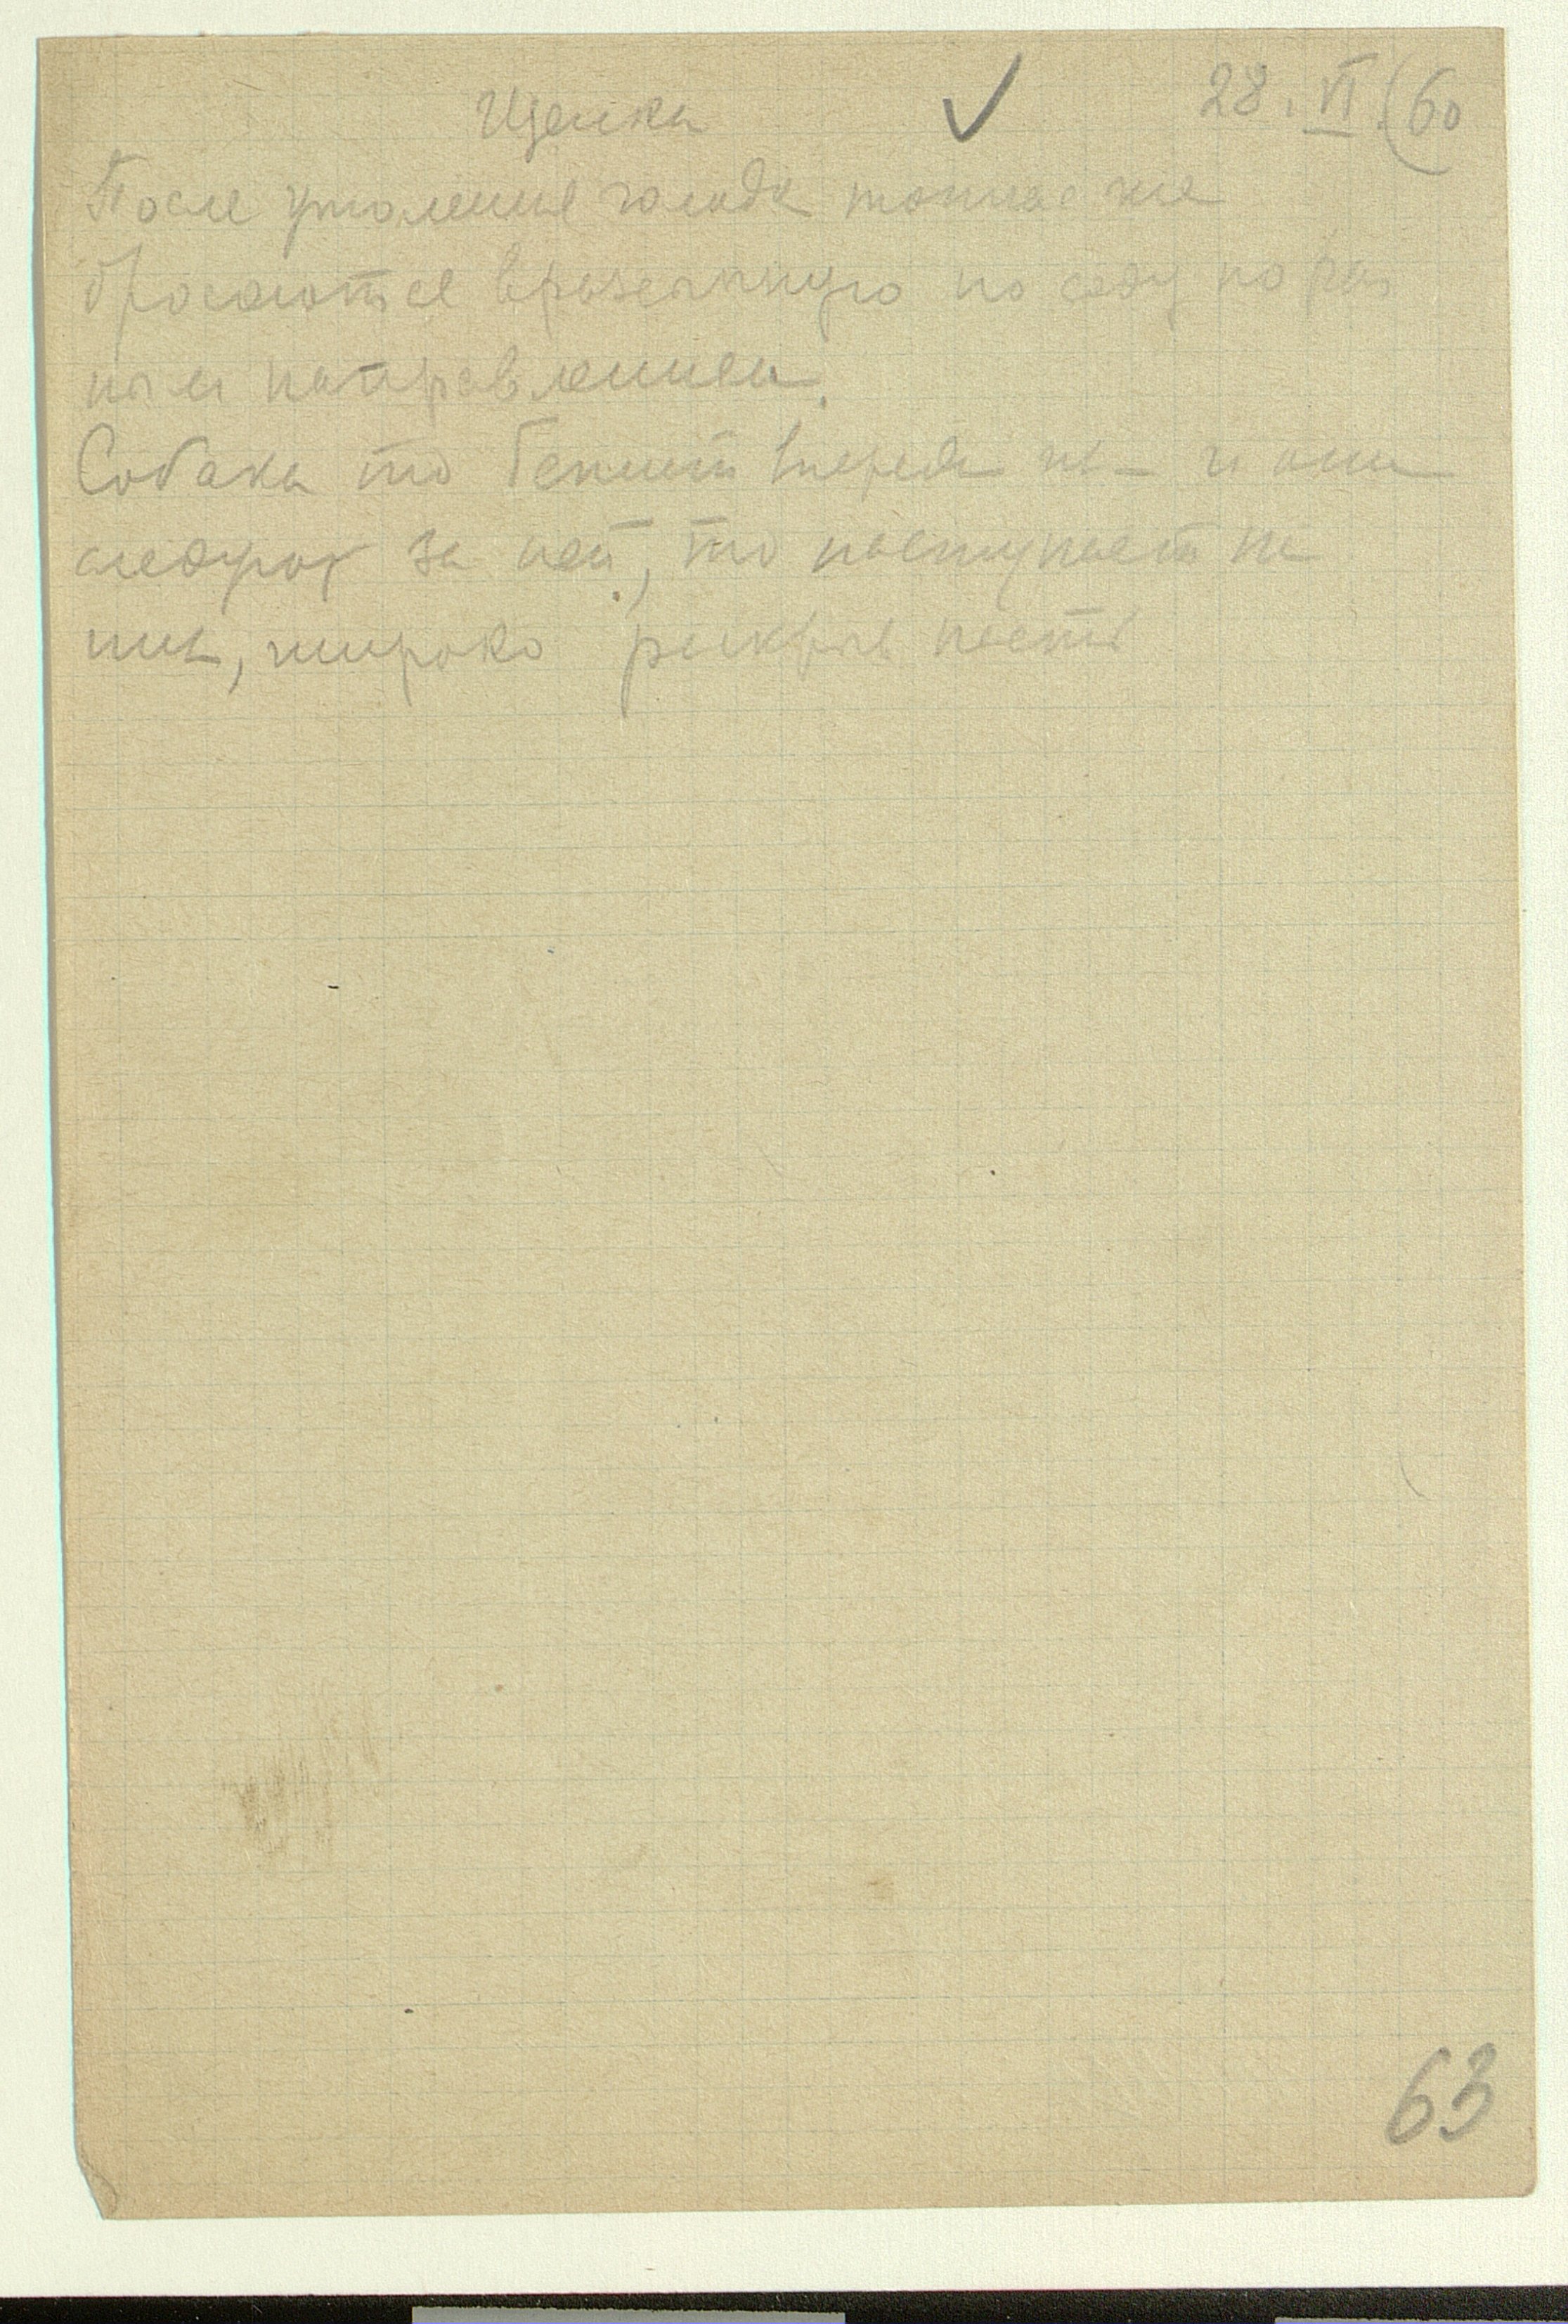 Щенки ✓ 28. VI (60
После утоления голода тотчас же
бросаются врассыпную по саду по раз
ным направлениям.
Собака то бежит впереди их – и они
следуют за ней, то наступает на
них, широко раскрыв пасть
63